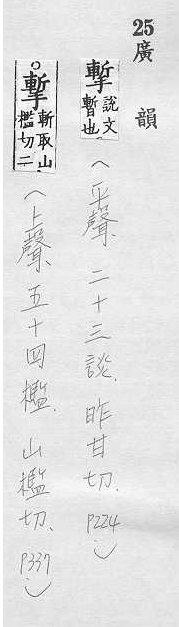 25 廣韻
摲 說文暫也 (平聲 二十三談. 昨甘切. P224.)
摲 斬取山檻切二 (上聲 五十四檻. 山檻切. P337.)